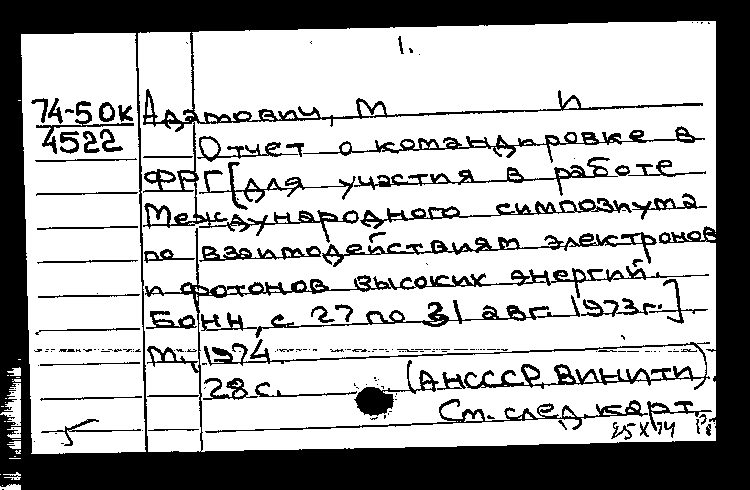 1.
74-5 Ок Адамович, М И
4522 Отчет о командировке в
ФРГ [для участия в работе
Международного симпозиума
по взаимодействиям электронов
и фотонов высоких энергий.
Бонн, с 27 по 31 авг. 1973г.].
М., 1974.
28 с. (АН СССР, ВИНИТИ).
См. след. карт.
25 X 74